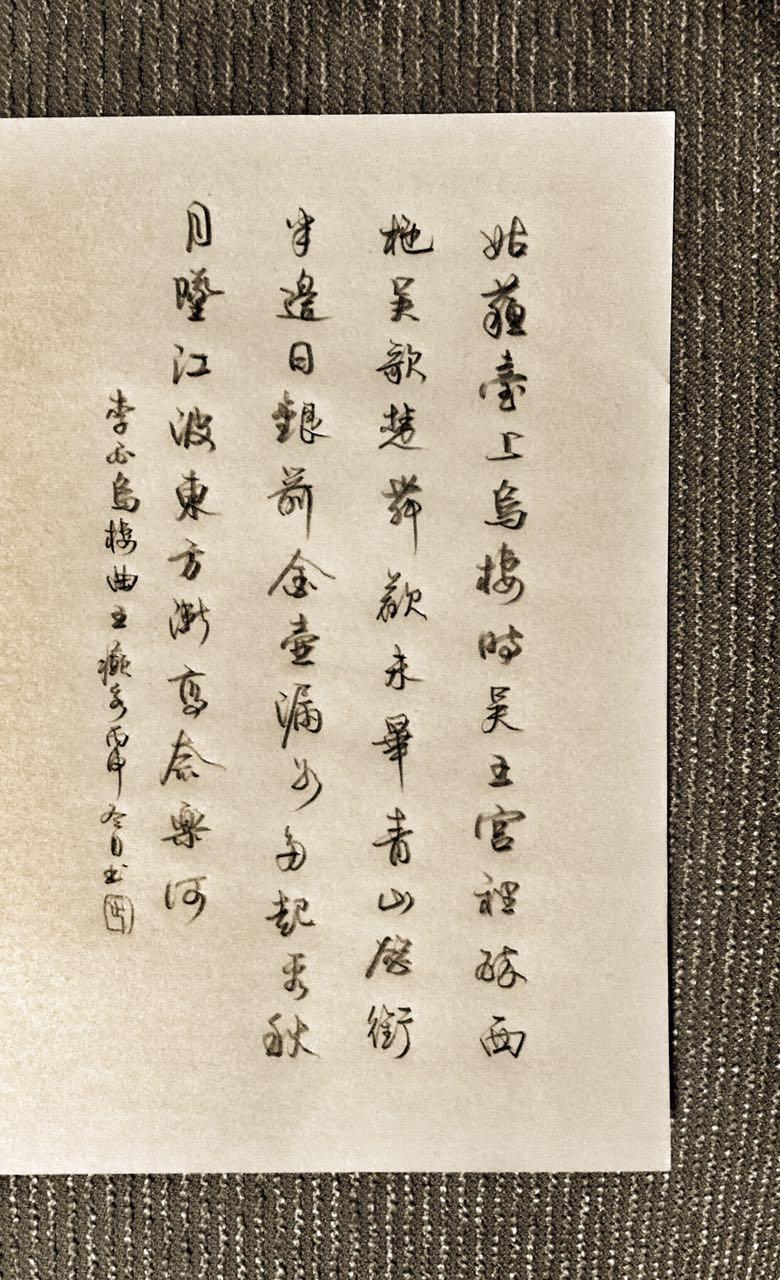 姑蘇臺上烏棲時吳王宮裡醉西
施吳歌楚舞歡未畢青山欲銜
半邊日銀箭金壺漏水多起看秋
月墜江波東方漸高奈樂何
李白烏棲曲王丙申冬月书